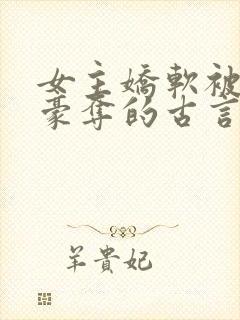 女主嬌軟被
豪奪的古言
羊貴妃